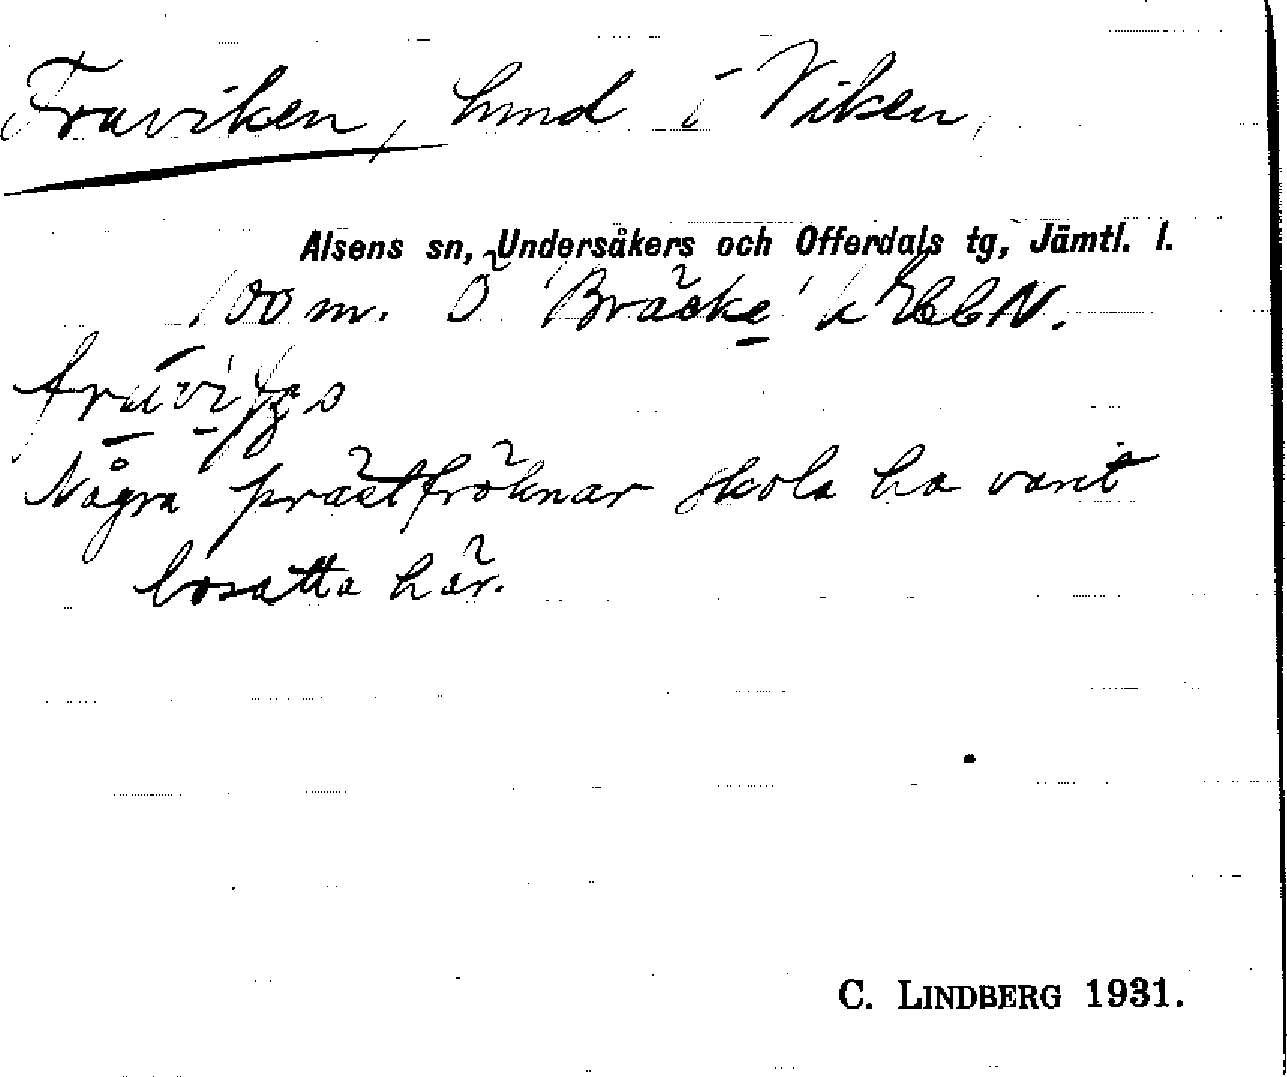 Fruviken, lund i Viken,
Alsens sn, Undersåkers och Offerdals tg, Jämtl. l.
100 m. Ö 'Bräcke' k
Några prästfröknar skola ha varit
bosatta här.
C. LINDBERG 1931.